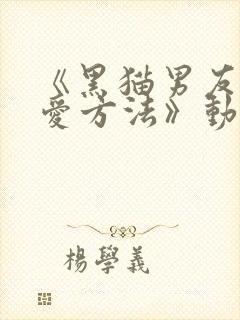 《黑猫男友
爱方法》動
楊學義